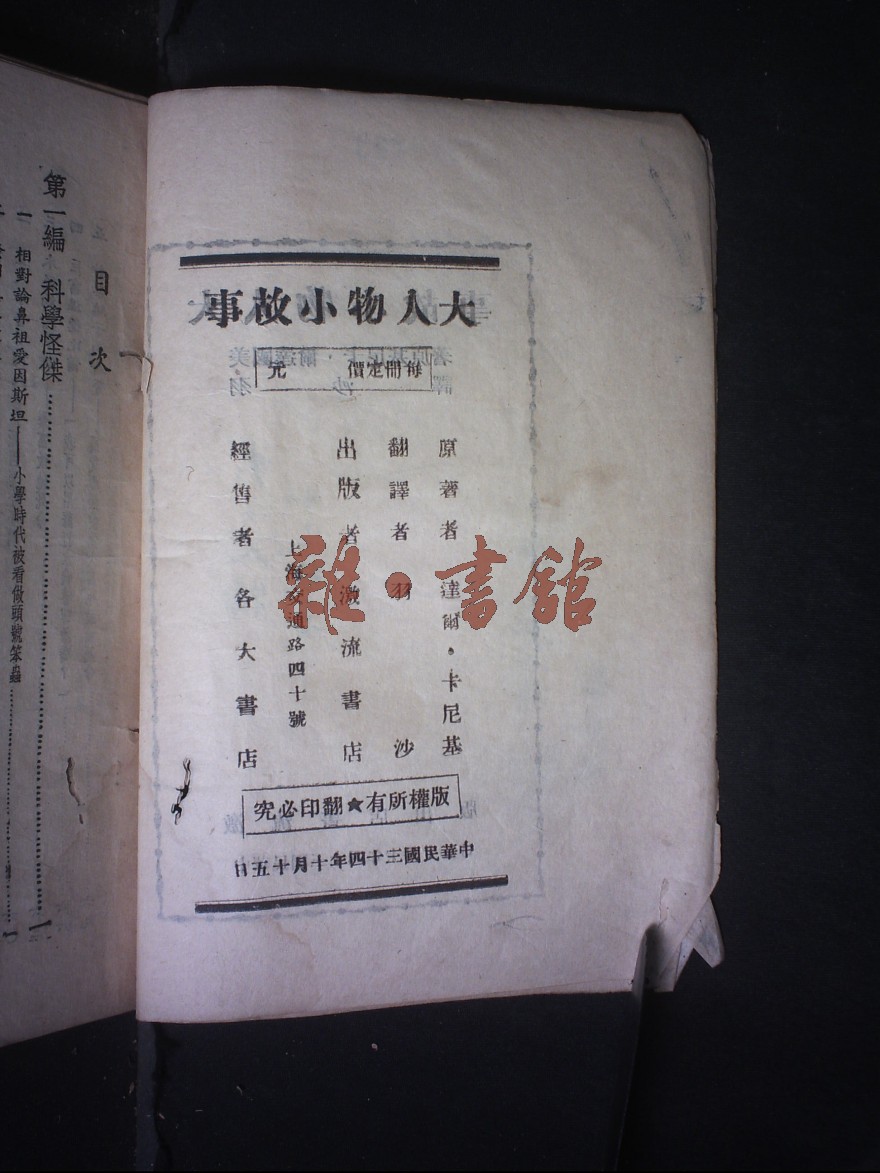 大人物小故事
每冊定價　　元
原著者 達爾·卡尼基
翻譯者 羽沙
出版者 激流書店
上海交通路四十號
經售者 各大書店
版權所有★翻印必究
中華民國三十四年十月十五日
目次
第一編 科學怪傑
一 相對論鼻祖愛因斯坦——小學時代被看做頭號笨蟲
雜·書館